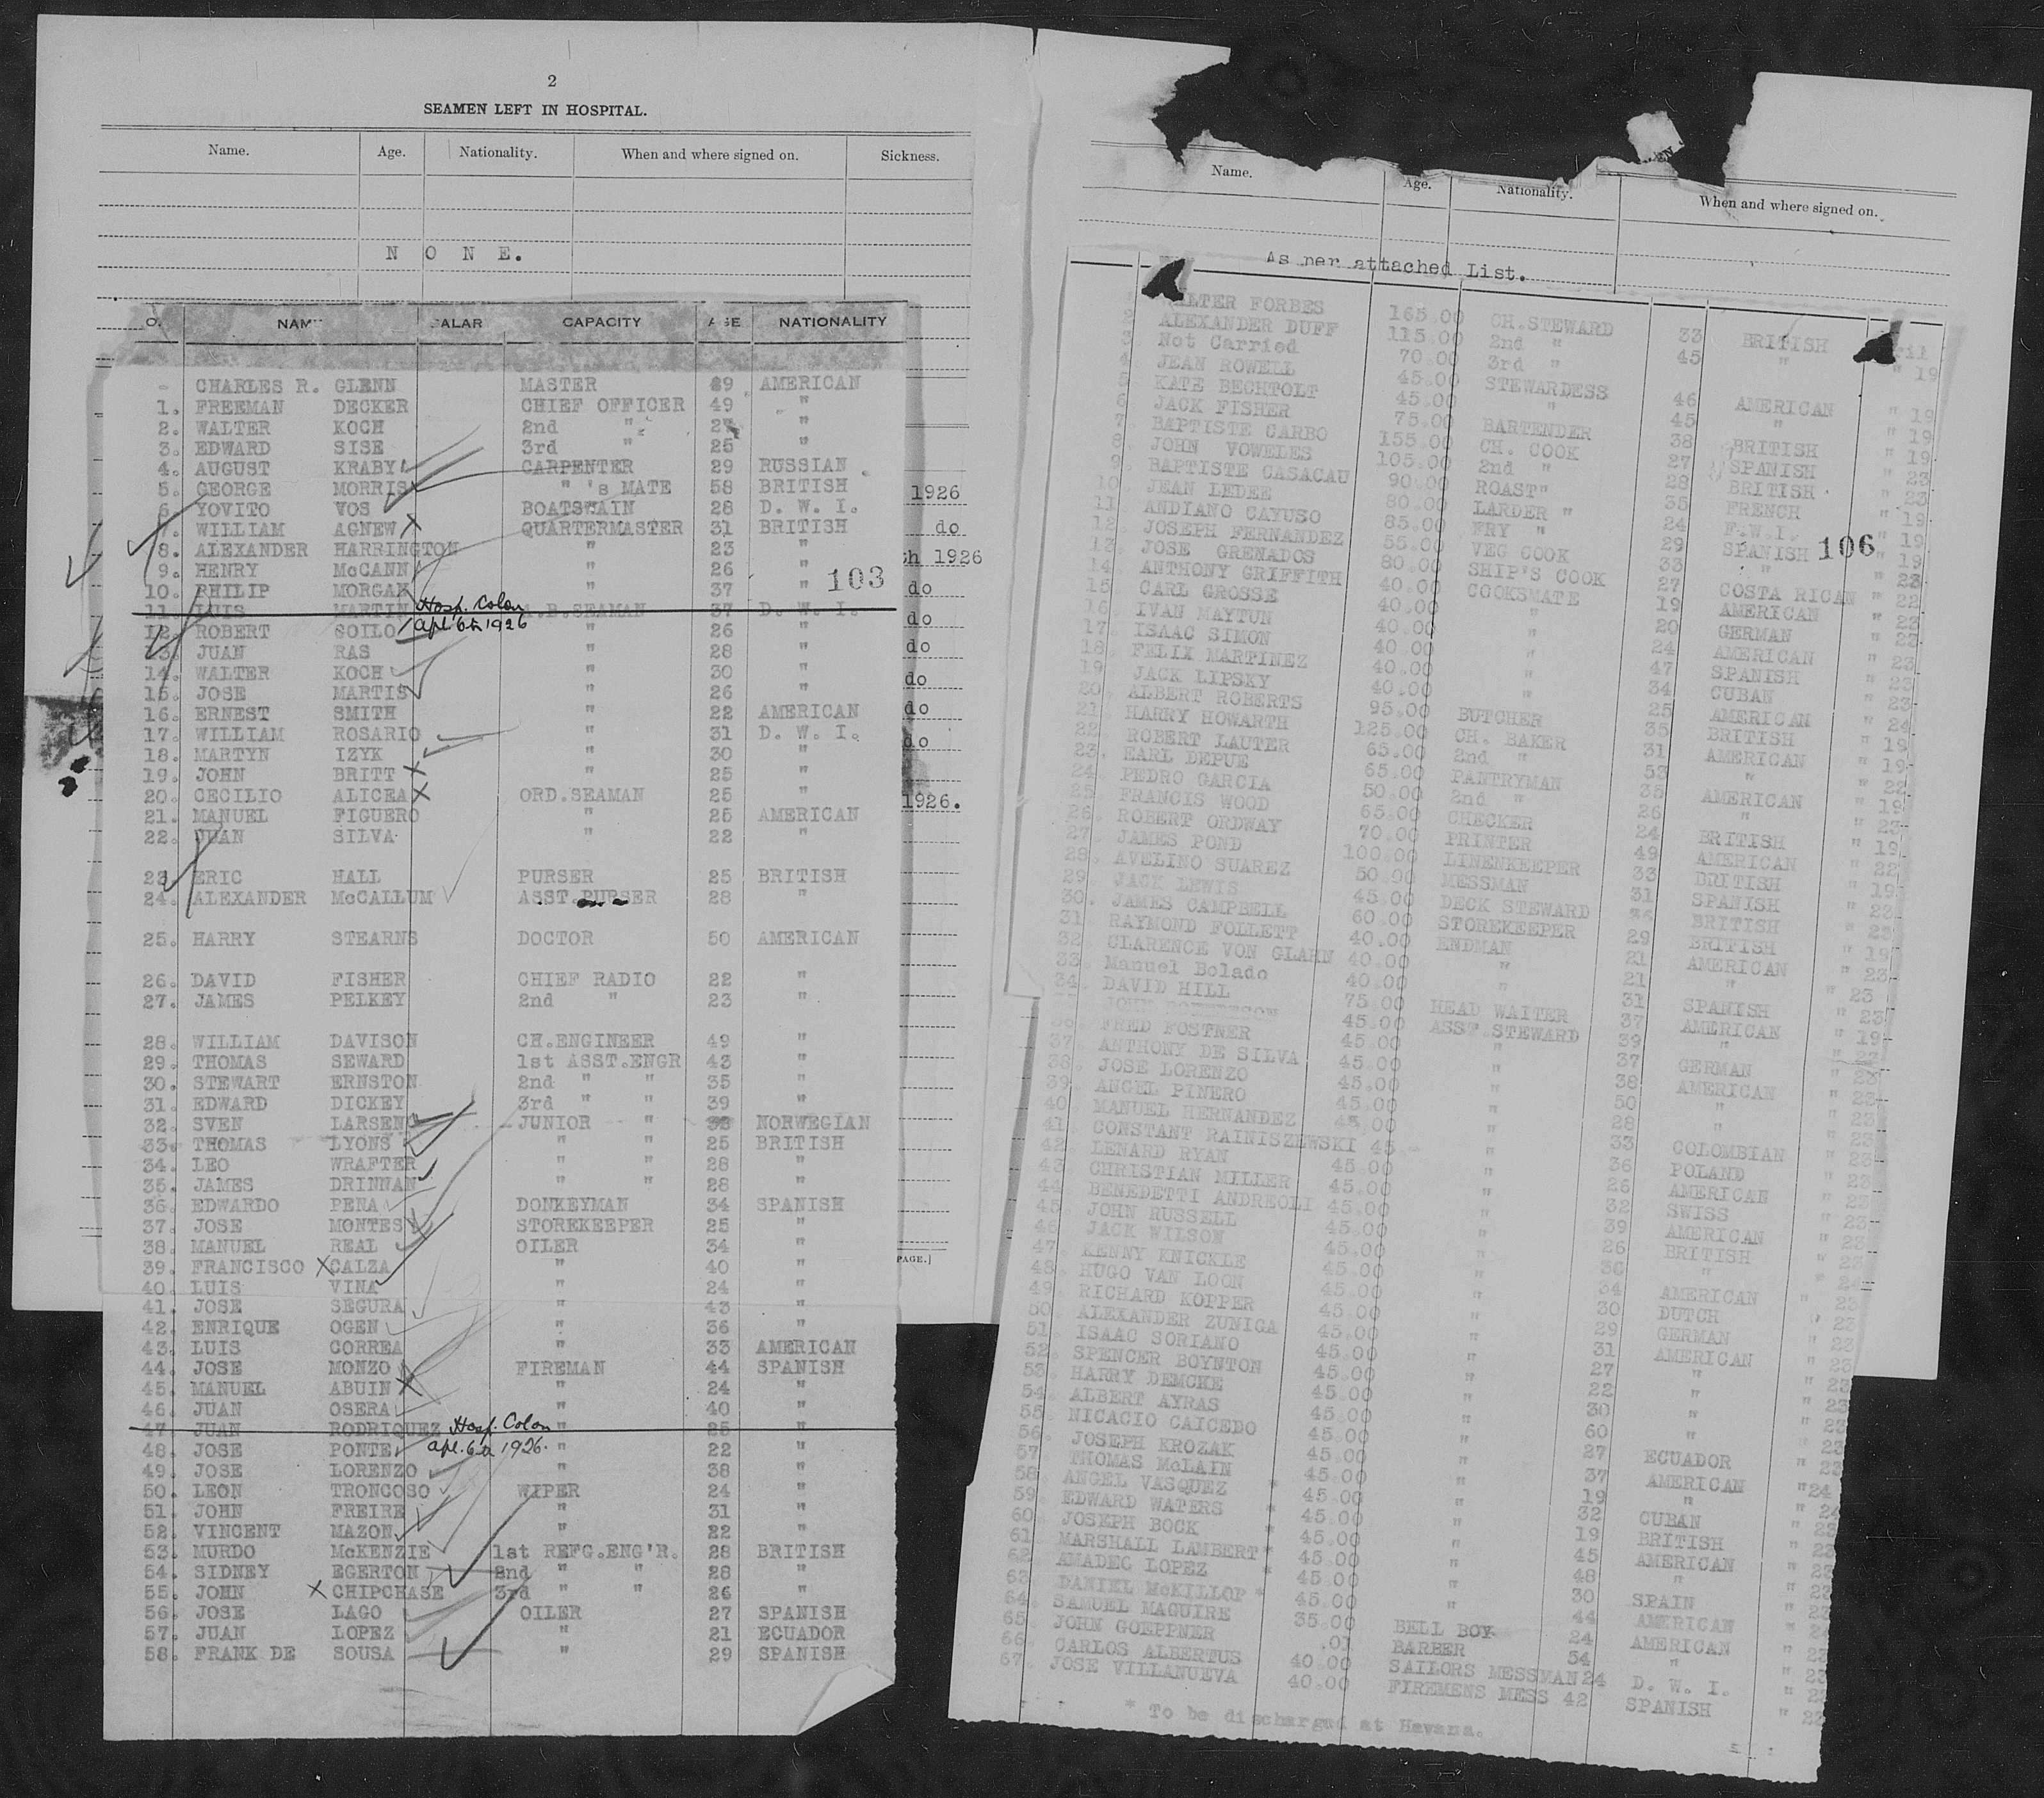 2
SEAMEN LEFT IN HOSPITAL.
Name. Age. Nationality. When and where signed on. Sickness.
N O N E.
O. NAM ALAR CAPACITY AGE NATIONALITY
- CHARLES R. GLENN MASTER 39 AMERICAN
1. FREEMAN DECKER CHIEF OFFICER 49 "
2. WALTER KOCH 2nd " "
3. EDWARD SISE 3rd " 25 "
4. AUGUST KRABY CARPENTER 29 RUSSIAN
5. GEORGE MORRIS " 's MATE 58 BRITISH
6. YOVITO VOS BOATSWAIN 28 D. W. I.
7. WILLIAM AGNEW X QUARTERMASTER 31 BRITISH
8. ALEXANDER HARRINGTON " 23 "
9. HENRY McCANN " 26 "
10. PHILIP MORGAN " 37 "
11. LUIS MARTIN Hosp. Colon A.B.SEAMAN 37 D. W. I.
12. ROBERT GOILO apl 6th 1926 " 26 "
13. JUAN RAS " 28 "
14. WALTER KOCH " 30 "
15. JOSE MARTIS " 26 "
16. ERNEST SMITH " 22 AMERICAN
17. WILLIAM ROSARIO " 31 D. W. I.
18. MARTYN IZYK " 30 "
19. JOHN BRITT X " 25 "
20. CECILIO ALICEA X ORD.SEAMAN 25 "
21. MANUEL FIGUERO " 25 AMERICAN
22. JUAN SILVA " 22 "
23. ERIC HALL PURSER 25 BRITISH
24. ALEXANDER McCALLUM ASST.PURSER 28 "
25. HARRY STEARNS DOCTOR 50 AMERICAN
26. DAVID FISHER CHIEF RADIO 22 "
27. JAMES PELKEY 2nd " 23 "
28. WILLIAM DAVISON CH.ENGINEER 49 "
29. THOMAS SEWARD 1st ASST.ENGR 43 "
30. STEWART ERNSTON 2nd " " 35 "
31. EDWARD DICKEY 3rd " " 39 "
32. SVEN LARSEN JUNIOR " NORWEGIAN
33. THOMAS LYONS " " 25 BRITISH
34. LEO WRAFTER " " 28 "
35. JAMES DRINNAN " " 28 "
36. EDWARDO PENA DONKEYMAN 34 SPANISH
37. JOSE MONTES STOREKEEPER 25 "
38. MANUEL REAL OILER 34 "
39. FRANCISCO X CALZA " 40 "
40. LUIS VINA " 24 "
41. JOSE SEGURA " 43 "
42. ENRIQUE OGEN " 36 "
43. LUIS CORREA " 33 AMERICAN
44. JOSE MONZO FIREMAN 44 SPANISH
45. MANUEL ABUIN X " 24 "
46. JUAN OSERA " 40 "
47. JUAN RODRIQUEZ Hosp. Colon " 25 "
48. JOSE PONTE apl. 6th 1926. " 22 "
49. JOSE LORENZO " 38 "
50. LEON TRONCOSO WIPER 24 "
51. JOHN FREIRE " 31 "
52. VINCENT MAZON " 22 "
53. MURDO McKENZIE 1st REFG.ENG'R. 28 BRITISH
54. SIDNEY EGERTON 2nd " " 28 "
55. JOHN X CHIPCHASE 3rd " " 26 "
56. JOSE LAGO OILER 27 SPANISH
57. JUAN LOPEZ " 21 ECUADOR
58. FRANK DE SOUSA " 29 SPANISH
103
1926
do
th 1926
do
do
do
do
do
do
1926.
PAGE.]
Name. Age. Nationality. When and where signed on.
As per attached List.
WALTER FORBES 165.00 CH.STEWARD 33 BRITISH ril 19
2. ALEXANDER DUFF 115.00 2nd " 45 " " 19
3. Not Carried 70.00 3rd "
4. JEAN ROWELL 45.00 STEWARDESS 46 AMERICAN " 19
5. KATE BECHTOLT 45.00 " 45 " " 19
6. JACK FISHER 75.00 BARTENDER 38 BRITISH " 19
7. BAPTISTE CARBO 155.00 CH. COOK 27 SPANISH " 23
8. JOHN VOWELES 105.00 2nd " 28 BRITISH " 23
9. BAPTISTE CASACAU 90.00 ROAST" 35 FRENCH " 19
10. JEAN LEDEE 80.00 LARDER " 24 F.W.I. " 19
11. ANDIANO CAYUSO 85.00 FRY " 29 SPANISH " 19
12. JOSEPH FERNANDEZ 55.00 VEG COOK 33 " " 23
13. JOSE GRENADOS 80.00 SHIP'S COOK 27 COSTA RICAN " 22
14. ANTHONY GRIFFITH 40.00 COOKSMATE 19 AMERICAN " 23
15 CARL GROSSE 40.00 " 20 GERMAN " 23
16 IVAN MAYTUN 40.00 " 24 AMERICAN " 23
17. ISAAC SIMON 40.00 " 47 SPANISH " 23
18. FELIX MARTINEZ 40.00 " 34 CUBAN " 23
19. JACK LIPSKY 40.00 " 25 AMERICAN " 24
20. ALBERT ROBERTS 95.00 BUTCHER 35 BRITISH " 19
21. HARRY HOWARTH 125.00 CH. BAKER 31 AMERICAN " 19
22. ROBERT LAUTER 65.00 2nd " 53 " " 22
23. EARL DEPUE 65.00 PANTRYMAN 35 AMERICAN " 19
24. PEDRO GARCIA 50.00 2nd " 26 " " 23
25 FRANCIS WOOD 65.00 CHECKER 24 BRITISH " 19
26. ROBERT ORDWAY 70.00 PRINTER 49 AMERICAN " 22
27. JAMES POND 100.00 LINENKEEPER 33 BRITISH " 19
28. AVELINO SUAREZ 50.00 MESSMAN 31 SPANISH " 23
29. JACK LEWIS 45.00 DECK STEWARD 36 BRITISH " 23
30. JAMES CAMPBELL 60.00 STOREKEEPER 29 BRITISH " 19
31 RAYMOND FOLLETT 40.00 ENDMAN 21 AMERICAN " 23
32. CLARENCE VON GLAHN 40.00 " 21 " " 23
33. Manuel Bolado 40.00 " 31 SPANISH " 23
34. DAVID HILL 75.00 HEAD WAITER 37 AMERICAN " 19
JOHN 45.00 ASST.STEWARD 39 "
36. FRED FOSTNER 45.00 " 37 GERMAN " 23
37 ANTHONY DE SILVA 45.00 " 38 AMERICAN " 23
38. JOSE LORENZO 45.00 " 50 " " 23
39. ANGEL PINERO 45.00 " 28 " " 23
40 MANUEL HERNANDEZ 45.00 " 33 COLOMBIAN " 23
41. CONSTANT RAINISZEWSKI 45 - " 36 POLAND " 23
42. LENARD RYAN 45.00 " 26 AMERICAN " 23
43. CHRISTIAN MILLER 45.00 " 32 SWISS " 23
44. BENEDETTI ANDREOLI 45.00 " 39 AMERICAN " 23
45. JOHN RUSSELL 45.00 " 26 BRITISH " 23
46. JACK WILSON 45.00 " 36 " " 24
47. KENNY KNICKLE 45.00 " 34 AMERICAN " 23
48. HUGO VAN LOON 45.00 " 30 DUTCH " 23
49. RICHARD KOPPER 45.00 " 29 GERMAN " 23
50. ALEXANDER ZUNIGA 45.00 " 31 AMERICAN " 23
51. ISAAC SORIANO 45.00 " 27 " " 23
52. SPENCER BOYNTON 45.00 " 22 " " 23
53. HARRY DEMCKE 45.00 " 30 " " 23
54. ALBERT AYRAS 45.00 " 60 " " 23
55. NICACIO CAICEDO 45.00 " 27 ECUADOR " 23
56. JOSEPH KROZAK 45.00 " 37 AMERICAN "24
57 THOMAS McLAIN 45.00 " 19 " " 24
58. ANGEL VASQUEZ * 45 00 " 32 CUBAN " 23
59. EDWARD WATERS * 45.00 " 19 BRITISH " 23
60. JOSEPH BOCK * 45.00 " 45 AMERICAN " 23
61 MARSHALL LAMBERT * 45.00 " 48 " " 23
62 AMADEC LOPEZ * 45.00 " 30 SPAIN " 23
63 DANIEL McKILLOP * 45.00 " 44 AMERICAN " 24
64. SAMUEL MAGUIRE 35.00 BELL BOY 24 AMERICAN " 23
65. JOHN GOEPPNER .01 BARBER 54 " " 23
66. CARLOS ALBERTUS 40.00 SAILORS MESSMAN 24 D. W. I. " 22
67. JOSE VILLANUEVA 40.00 FIREMENS MESS 42 SPANISH " 22
* To be discharged at Havana.
106